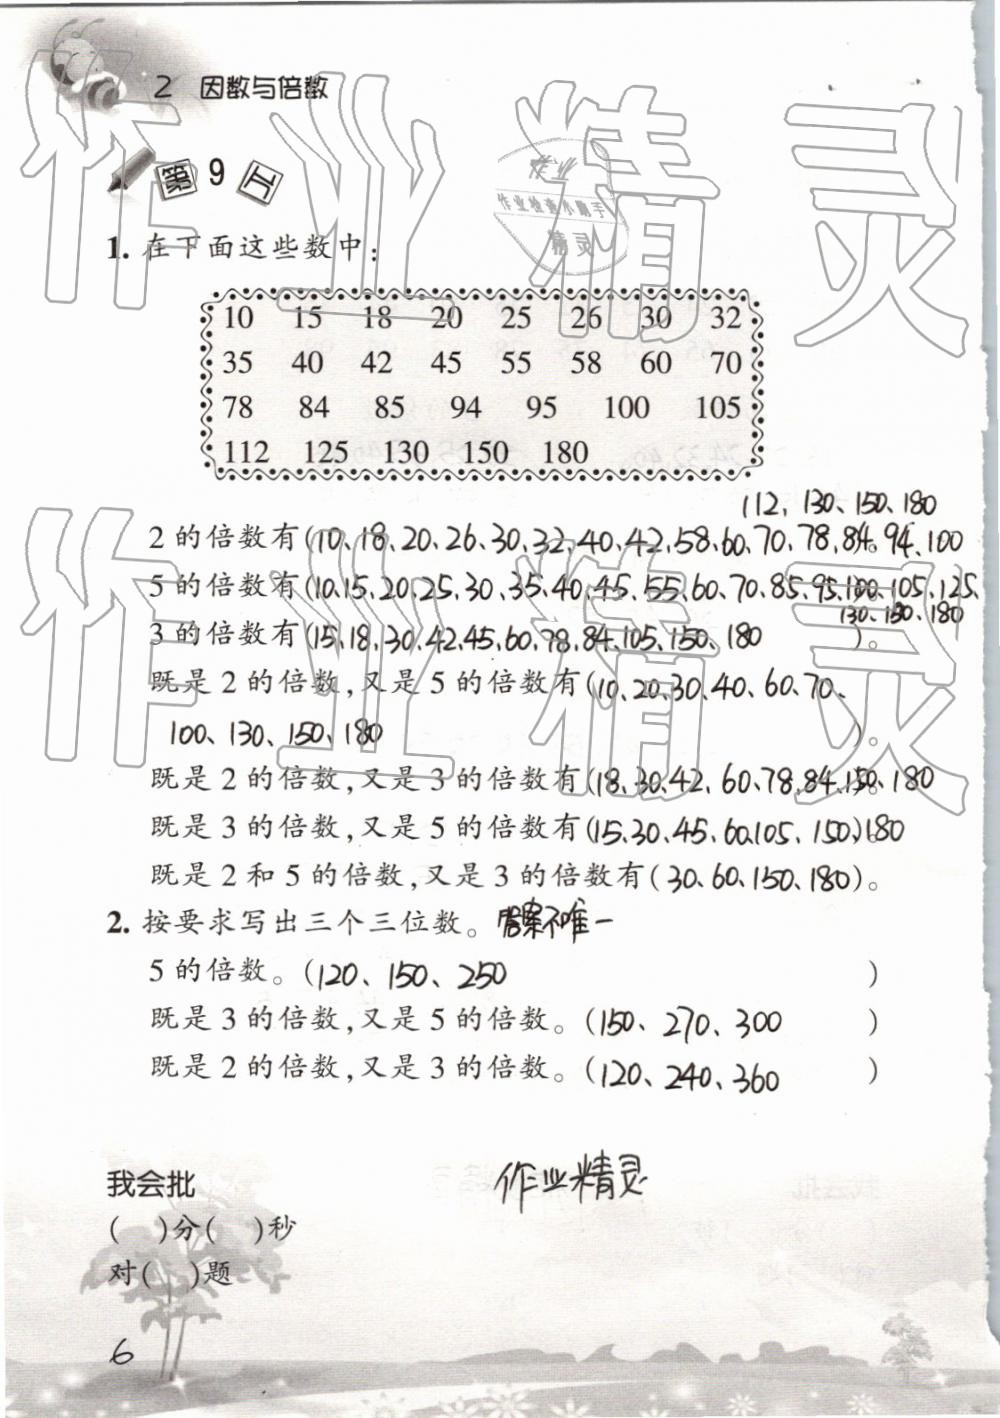 2 因数与倍数
第 9 卫
1. 在下面这些数中:
10 15 18 20 25 26 30 32
35 40 42 45 55 58 60 70
78 84 85 94 95 100 105
112 125 130 150 180
112, 130、150、180
2 的倍数有(10、18、20、26、30、32、40、42、58、60、70、78、84、94、100
5 的倍数有(10、15、20、25、30、35、40、45、55、60、70、85、95、100、105、125、
130、150、180
3 的倍数有(15、18、30、42、45、60、78、84、105、150、180 )。
既是 2 的倍数,又是 5 的倍数有(10、20、30、40、60、70、
100、130、150、180 )。
既是 2 的倍数,又是 3 的倍数有(18、30、42、60、78、84、150、180
既是 3 的倍数,又是 5 的倍数有(15、30、45、60、105、150)180
既是 2 和 5 的倍数,又是 3 的倍数有(30、60、150、180)。
2. 按要求写出三个三位数。答案不唯一
5 的倍数。(120、150、250 )
既是 3 的倍数,又是 5 的倍数。(150、270、300 )
既是 2 的倍数,又是 3 的倍数。(120、240、360 )
作业精灵
我会批
( )分( )秒
对( )题
6
作业精灵
作业精灵
作业
作业检查小助手
精灵